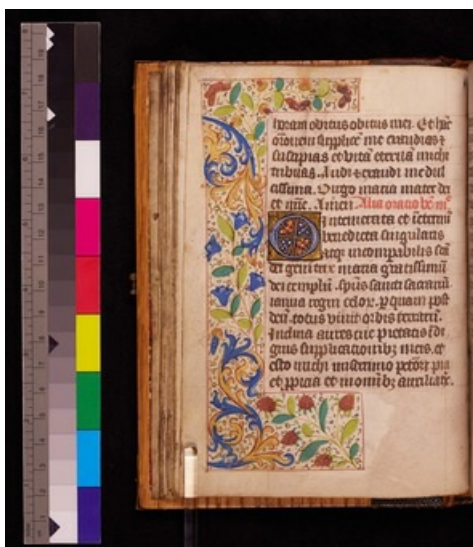 horam obitus obitus mei. Et hāc
or̄onem supplicē me exaudias ⁊
suscipias et vitā eternā michi
tribuas. Audi ⁊ exaudi me dul
cissima. Virgo maria mater dei
et mīe. Amen. Alia oratio
O Intemerata et ineternū
benedicta singularis
incomparabilis
dei genitrix maria gratissimū
dei templū. sp̄us sancti sacrariū
ianua regni celoꝝ. ꝑ quam post
deū. totus viuit orbis terraꝝ.
Inclina aures tue pietatis īdi
gnis supplicationibꝫ meis. et
esto michi miserrimo pia
et ꝓpicia et in omnibꝫ